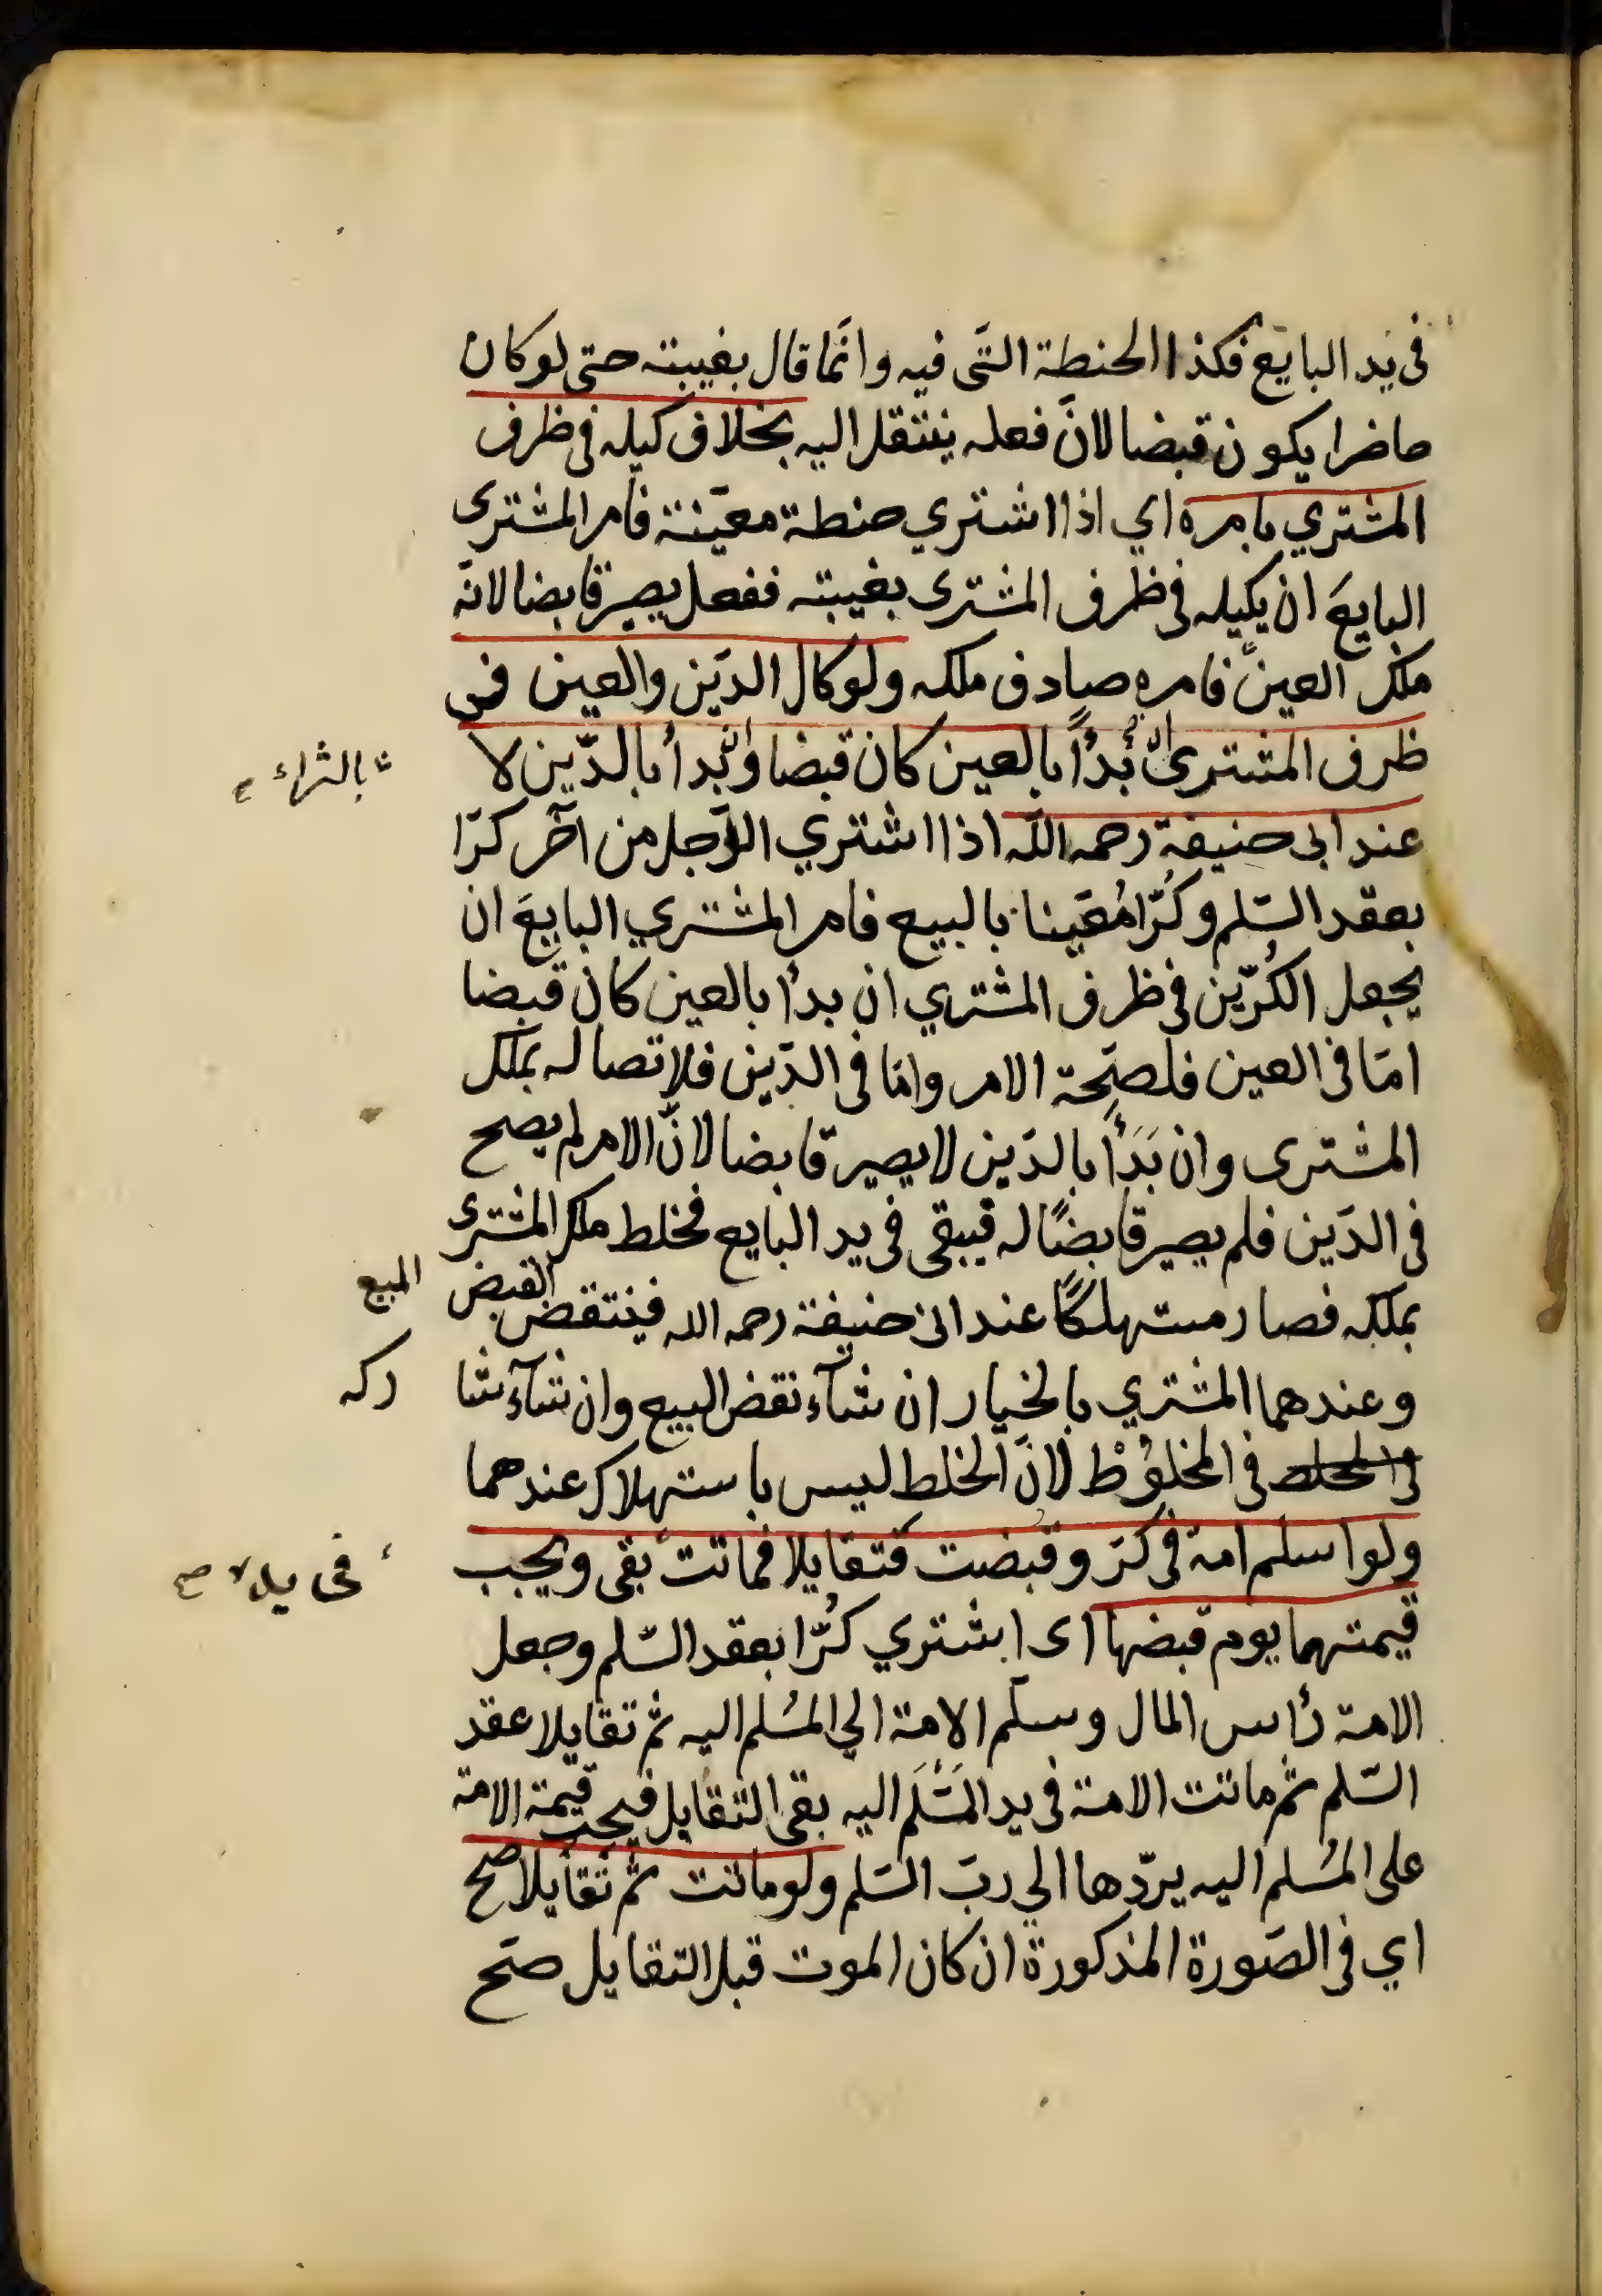 فى يد البايع فكذا الحنطة التى فيه وانما قال بغيبته حتى لو كان
حاضرا يكون قبضا لانّ فعله ينتقل اليه بخلاف كيله فى ظرف
المشتري بامره اي اذا اشتري حنطة معيّنة فأمر المشترى
البايعَ ان يكيله فى ظرف المشترى بغيبته ففعل يصير قابضا لانّه
ملك العين فامره صادف ملكه ولو كال الدّين والعين فى
ظرف المشترى ان بُدأ بالعين كان قبضا وان بدأ بالدّين لا
عند ابى حنيفة رحمه الله اذا اشتري الرّجل من آخر كرّا
بعقد السّلم وكُرّا مُعَيّنا بالبيع فامر المشتري البايعَ ان
يجعل الكُرّين فى ظرف المشتري ان بدأ بالعين كان قبضا
امّا فى العين فلصحّة الامر وامّا فى الدّين فلاتصاله بملك
المشترى وان بَدَأ بالدّين لا يصير قابضا لانّ الامر لم يصح
فى الدّين فلم يصير قابضًا له فيبقى فى يد البايع فخلط ملك المشترى
بملكه فصار مستهلكًا عند ابى حنيفة رحمه الله فينتقض القبض
وعندهما المشتري بالخيار ان شآء نقض البيع وان شآء شا
فى المخلوْط لانّ الخلط ليس باستهلاك عندهما
ولو اسلم امة فى كرّ وقبضت فتقايلا فماتت بقى ويجب
قيمتهما يوم قبضها اى اشتري كُرّا بعقد السّلم وجعل
الامة رأس المال وسلّم الامة الي المُسْلم اليه ثم تقايلا عقد
السّلم ثم ماتت الامة فى يد المَسَّلَم اليه بقى التقايل فيجب قيمة الامة
على المُسْلم اليه يردّها الي ربّ السّلم ولو ماتت ثم تقايلا صح
اي فى الصّورة المذكورة ان كان الموت قبل التقايل صحّ
بالشراء
المبيع
ركه
فى يده صح